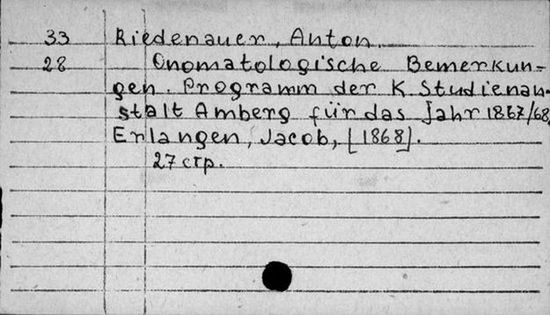 33 Riedenauer, Anton
28 Onomatologische Bemerkun-
gen. Programm der K. Studienan-
stalt Amberg für das Jahr 1867/68,
Erlangen, Jacob, [1868].
27 стр.